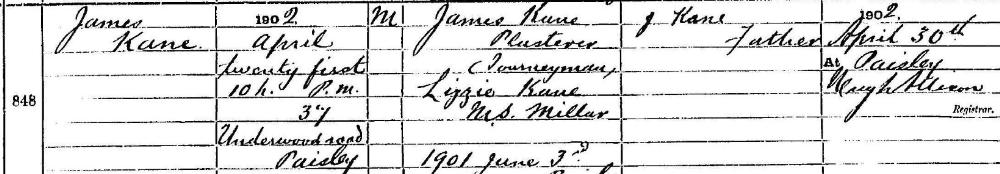 848
James
Kane
1902
April
twenty first
10 h. P.m.
37
Underwood road
Paisley
M
James Kane
Plasterer
(Journeyman)
Lizzie Kane
M.S. Millar
1901 June 3rd
J Kane
Father
1902.
April 30th
At Paisley
Hugh Allison
Registrar.